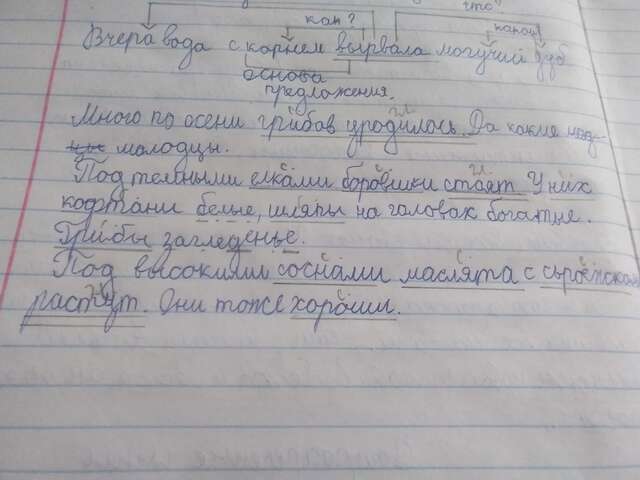 что
как? какой
Вчера вода с корнем вырвала могучий дуб
основа
предложения.
Много по осени грибов уродилось. Да какие
молодцы.
Под темными елками боровики стоят. У них
кафтани белые, шляпы на головах богатые.
Грибы загляденье.
Под высокими соснами маслята с сыроежками
растут. Они тоже хороши.